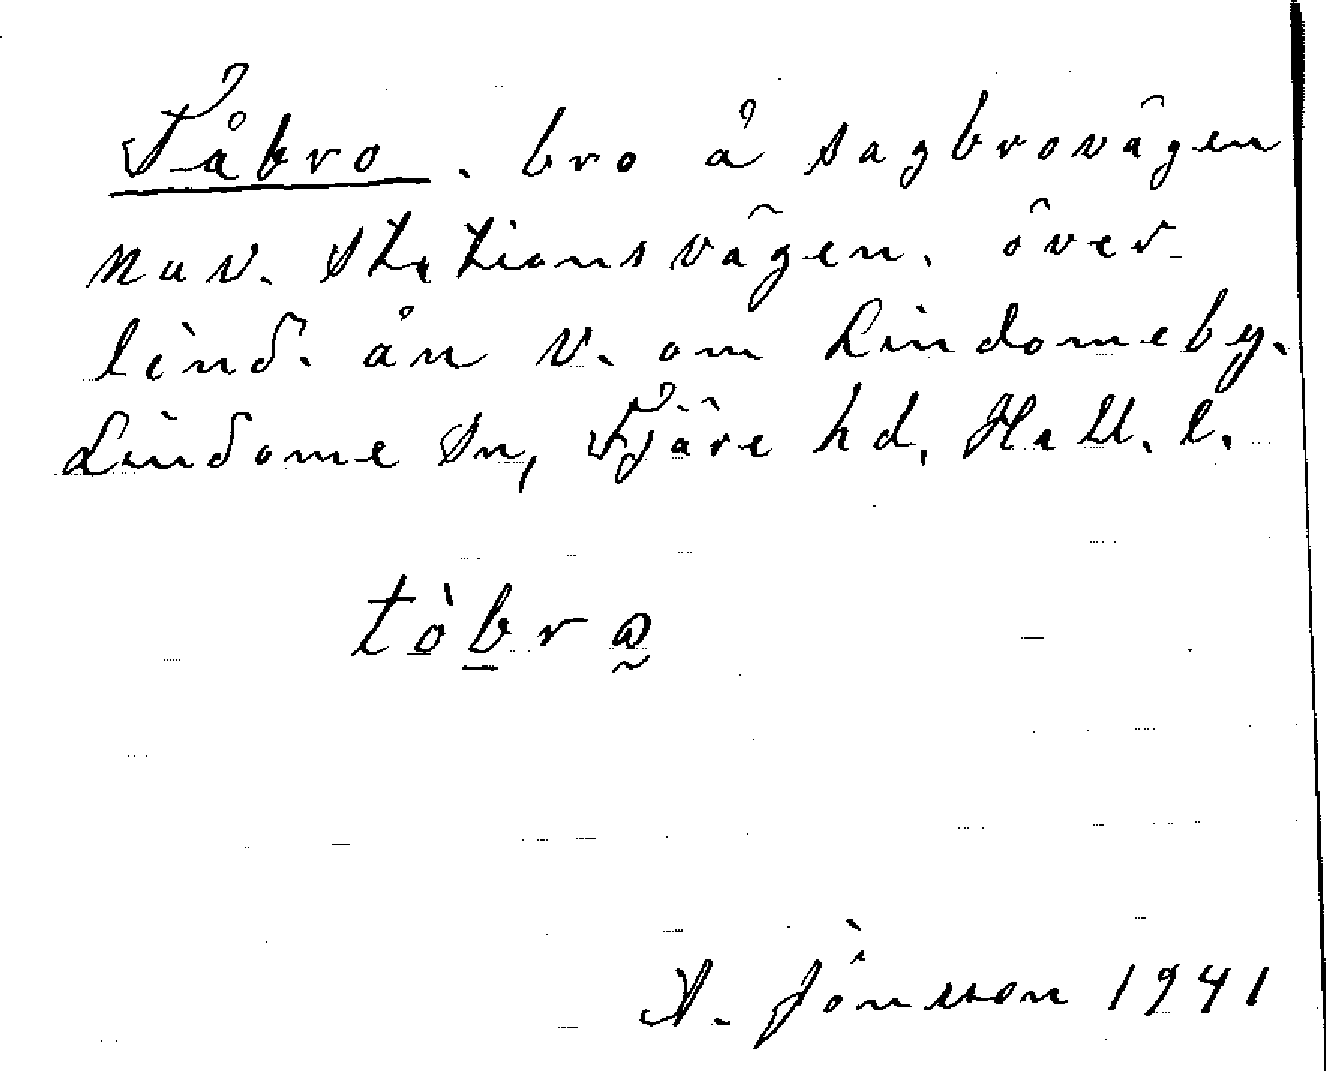 Tåbro. bro å sagbrovägen
nuv. Stationsvägen. över
lind. ån v. om Lindomeby.
Lindome sn, Fjäre hd, Hall. l.
tòbrω̰
A. Jönsson 1941